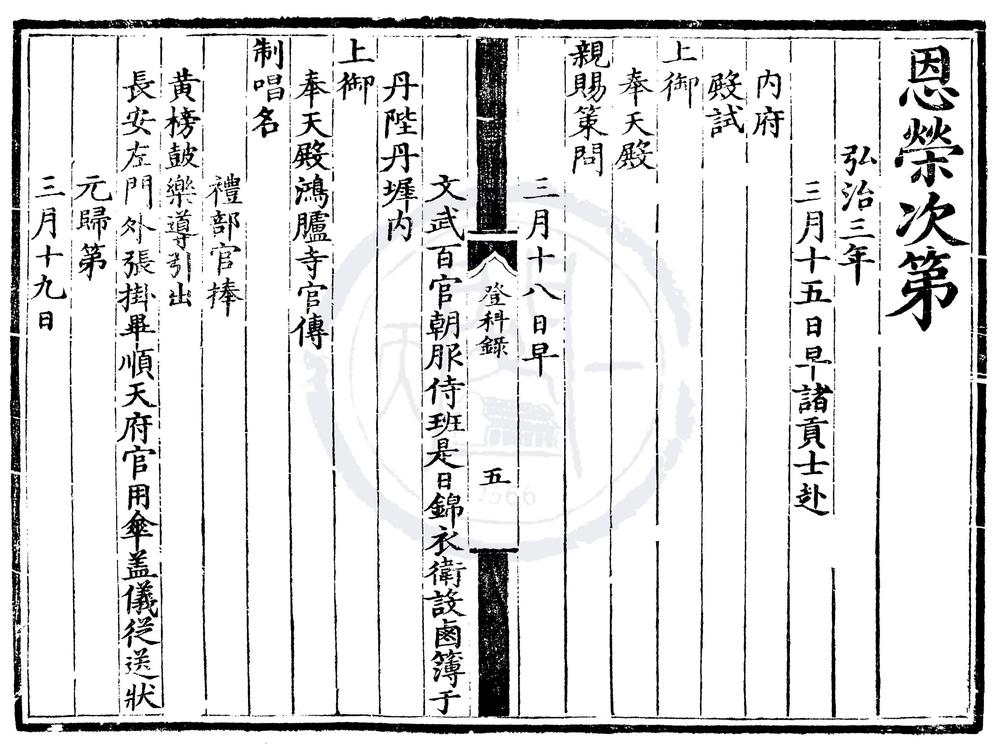 恩榮次第
弘治三年
三月十五日早諸貢士赴
內府
殿試
上御
奉天殿
親賜策問
三月十八日早
登科錄
五
文武百官朝服侍班是日錦衣衛設鹵簿于
丹陛丹墀內
上御
奉天殿鴻臚寺官傳
制唱名
禮部官捧
黃榜鼓樂導引出
長安左門外張掛畢順天府官用傘盖儀從送狀
元歸第
三月十九日